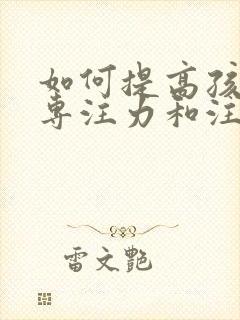 如何提高孩
专注力和注
雷文艳